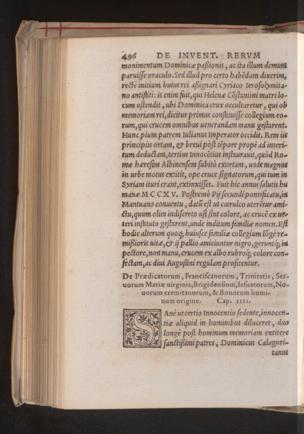 496 DE INVENT. RERVM
monimentum Dominicæ passionis, ac ita illum demum
paruisse oraculo. Sed illud pro certo habēdam dixerim,
recte initium huius rei assignari Cyriaco Ierosolymita-
no antistiti: is enim fuit, qui Helenæ Cōstantini matri lo-
cum ostendit, ubi Dominica crux occultaretur, qui ob
memoriam rei, dicitur primus constituisse collegium eo-
rum, qui crucem omnibus uenerandam manu gestarent.
Hunc pium patrem Iulianus Imperator occidit. Res ita
principiis ortam, & breui pōst tēpore propè ad interi-
tum deductam, tertius Innocētius instaurauit, quòd Ro-
mæ hæresim Albinensem subitò exortam, unde magnus
in urbe motus extitit, ope cruce signatorum, qui tum in
Syriam ituri erant, extinxisset. Fuit hic annus salutis hu
manæ MCCXV. Postremò Pij secundi pontificatu, in
Mantuano conuentu, datū est ut cæruleo uterētur ami-
ctu, quum olim indiscreto usi sint colore, ac crucē ex ue-
teri instituto gestarent, unde inditum familiæ nomen. Est
hodie alterum quoq; huiusce familiæ collegium lōgè re-
missioris uitæ, & ij pallio amiciuntur nigro, gerūtq; in
pectore, non manu, crucem ex albo rubroq; colore con-
fectam, ac diui Augustini regulam profitentur.
De Prædicatorum, Franciscanorum, Trinitatis, Ser-
uorum Mariæ uirginis, Brigidensium, Iesuatorum, No-
uorum eremitanorum, & Bonorum homi-
num origine. Cap. IIII.
SAnè ut tertio Innocentio sedente, innocen-
tiæ aliquid in hominibus diluceret, duo
longè post hominum memoriam extitere
sanctissimi patres, Dominicus Calaguri-
tanus